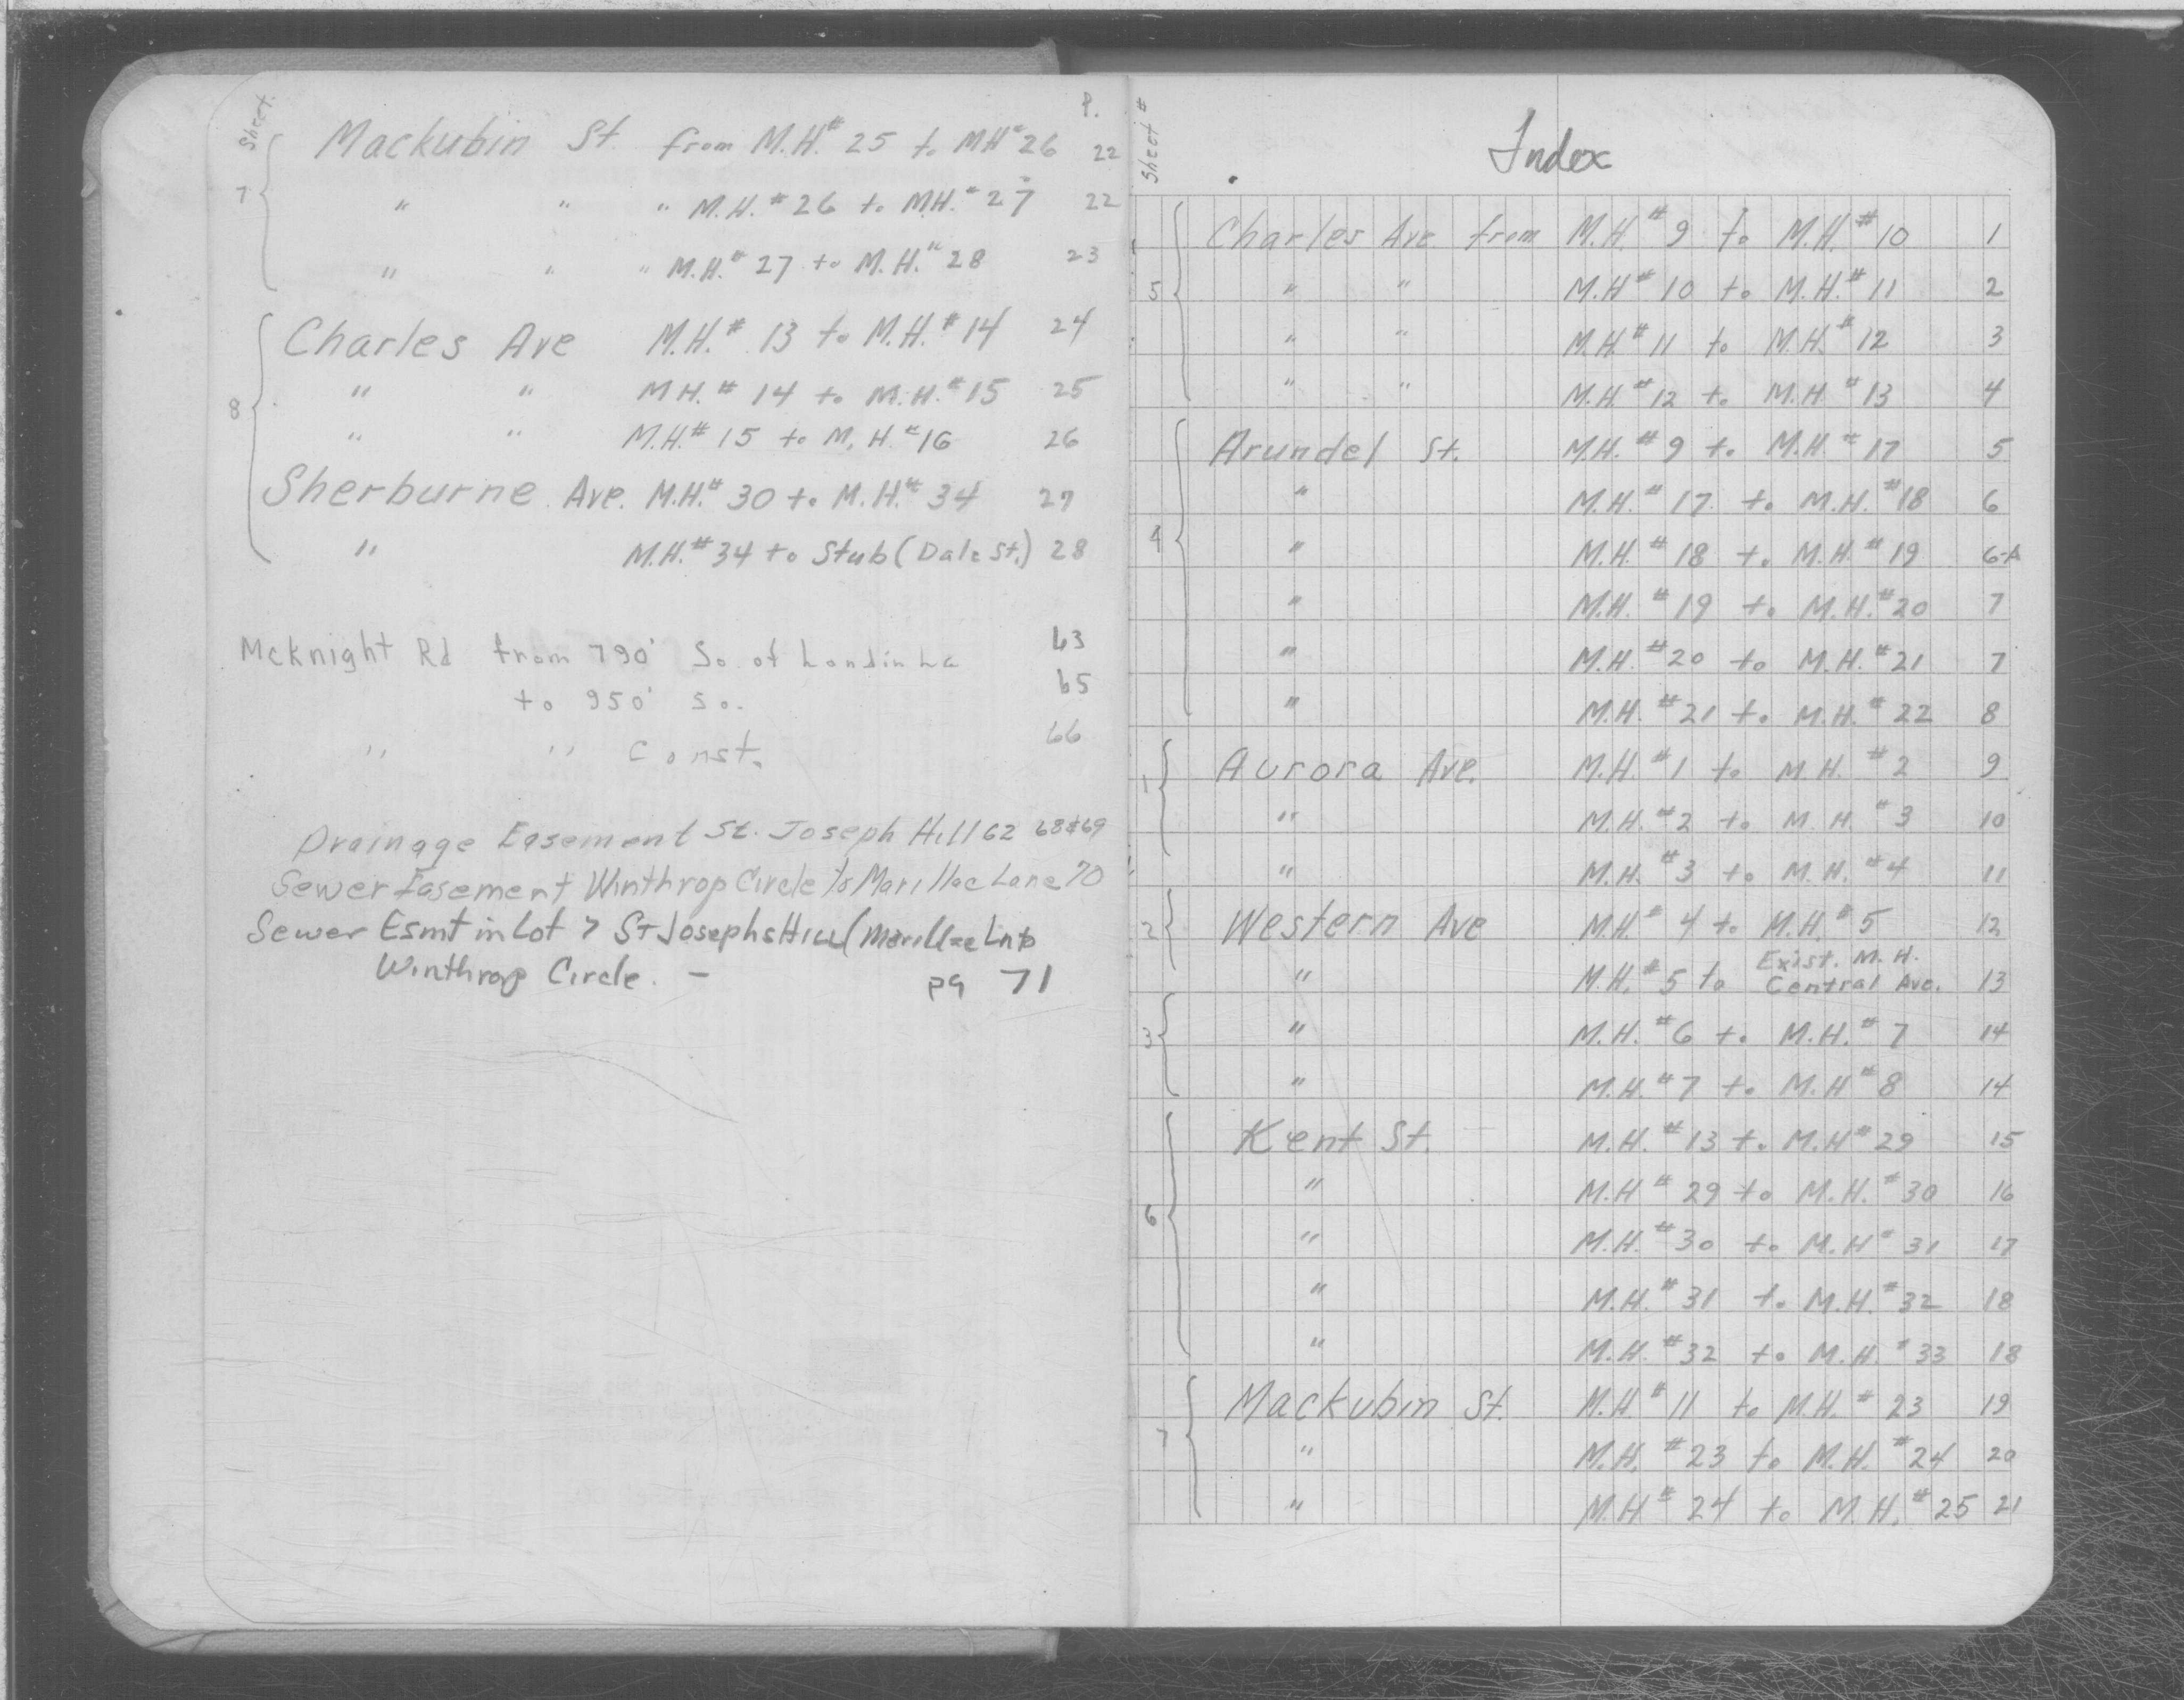 Sheet P.
Mackubin St. from M.H.# 25 to MH# 26 22
7 " " " M.H.# 26 to M.H.# 27 22
" " " M.H.# 27 to M.H.# 28 23
Charles Ave M.H.# 13 to M.H.# 14 24
8 " " M.H.# 14 to M.H.# 15 25
" " M.H.# 15 to M.H.# 16 26
Sherburne Ave. M.H.# 30 to M.H.# 34 27
" M.H.# 34 to Stub (Dale St.) 28
Mcknight Rd from 790' So. of Londin La 63
to 950' So. 65
" " Const. 66
Drainage Easement St. Joseph Hill 62 68&69
Sewer Easement Winthrop Circle to Marillac Lane 70
Sewer Esmt in Lot 7 St Josephs Hill (Marillac Ln to
Winthrop Circle. - pg 71
Sheet #
Index
Charles Ave from M.H.# 9 to M.H.# 10 1
5 " " M.H.# 10 to M.H.# 11 2
" " M.H.# 11 to M.H.# 12 3
" " M.H.# 12 to M.H.# 13 4
Arundel St. M.H.# 9 to M.H.# 17 5
" M.H.# 17 to M.H.# 18 6
4 " M.H.# 18 to M.H.# 19 6-A
" M.H.# 19 to M.H.# 20 7
" M.H.# 20 to M.H.# 21 7
" M.H.# 21 to M.H.# 22 8
1 Aurora Ave. M.H.# 1 to M.H.# 2 9
" M.H.# 2 to M.H.# 3 10
" M.H.# 3 to M.H.# 4 11
2 Western Ave M.H.# 4 to M.H.# 5 12
" M.H.# 5 to Exist. M.H. Central Ave. 13
3 " M.H.# 6 to M.H.# 7 14
" M.H.# 7 to M.H.# 8 14
Kent St. M.H.# 13 to M.H.# 29 15
" M.H.# 29 to M.H.# 30 16
6 " M.H.# 30 to M.H.# 31 17
" M.H.# 31 to M.H.# 32 18
" M.H.# 32 to M.H.# 33 18
Mackubin St. M.H.# 11 to M.H.# 23 19
7 " M.H.# 23 to M.H.# 24 20
" M.H.# 24 to M.H.# 25 21